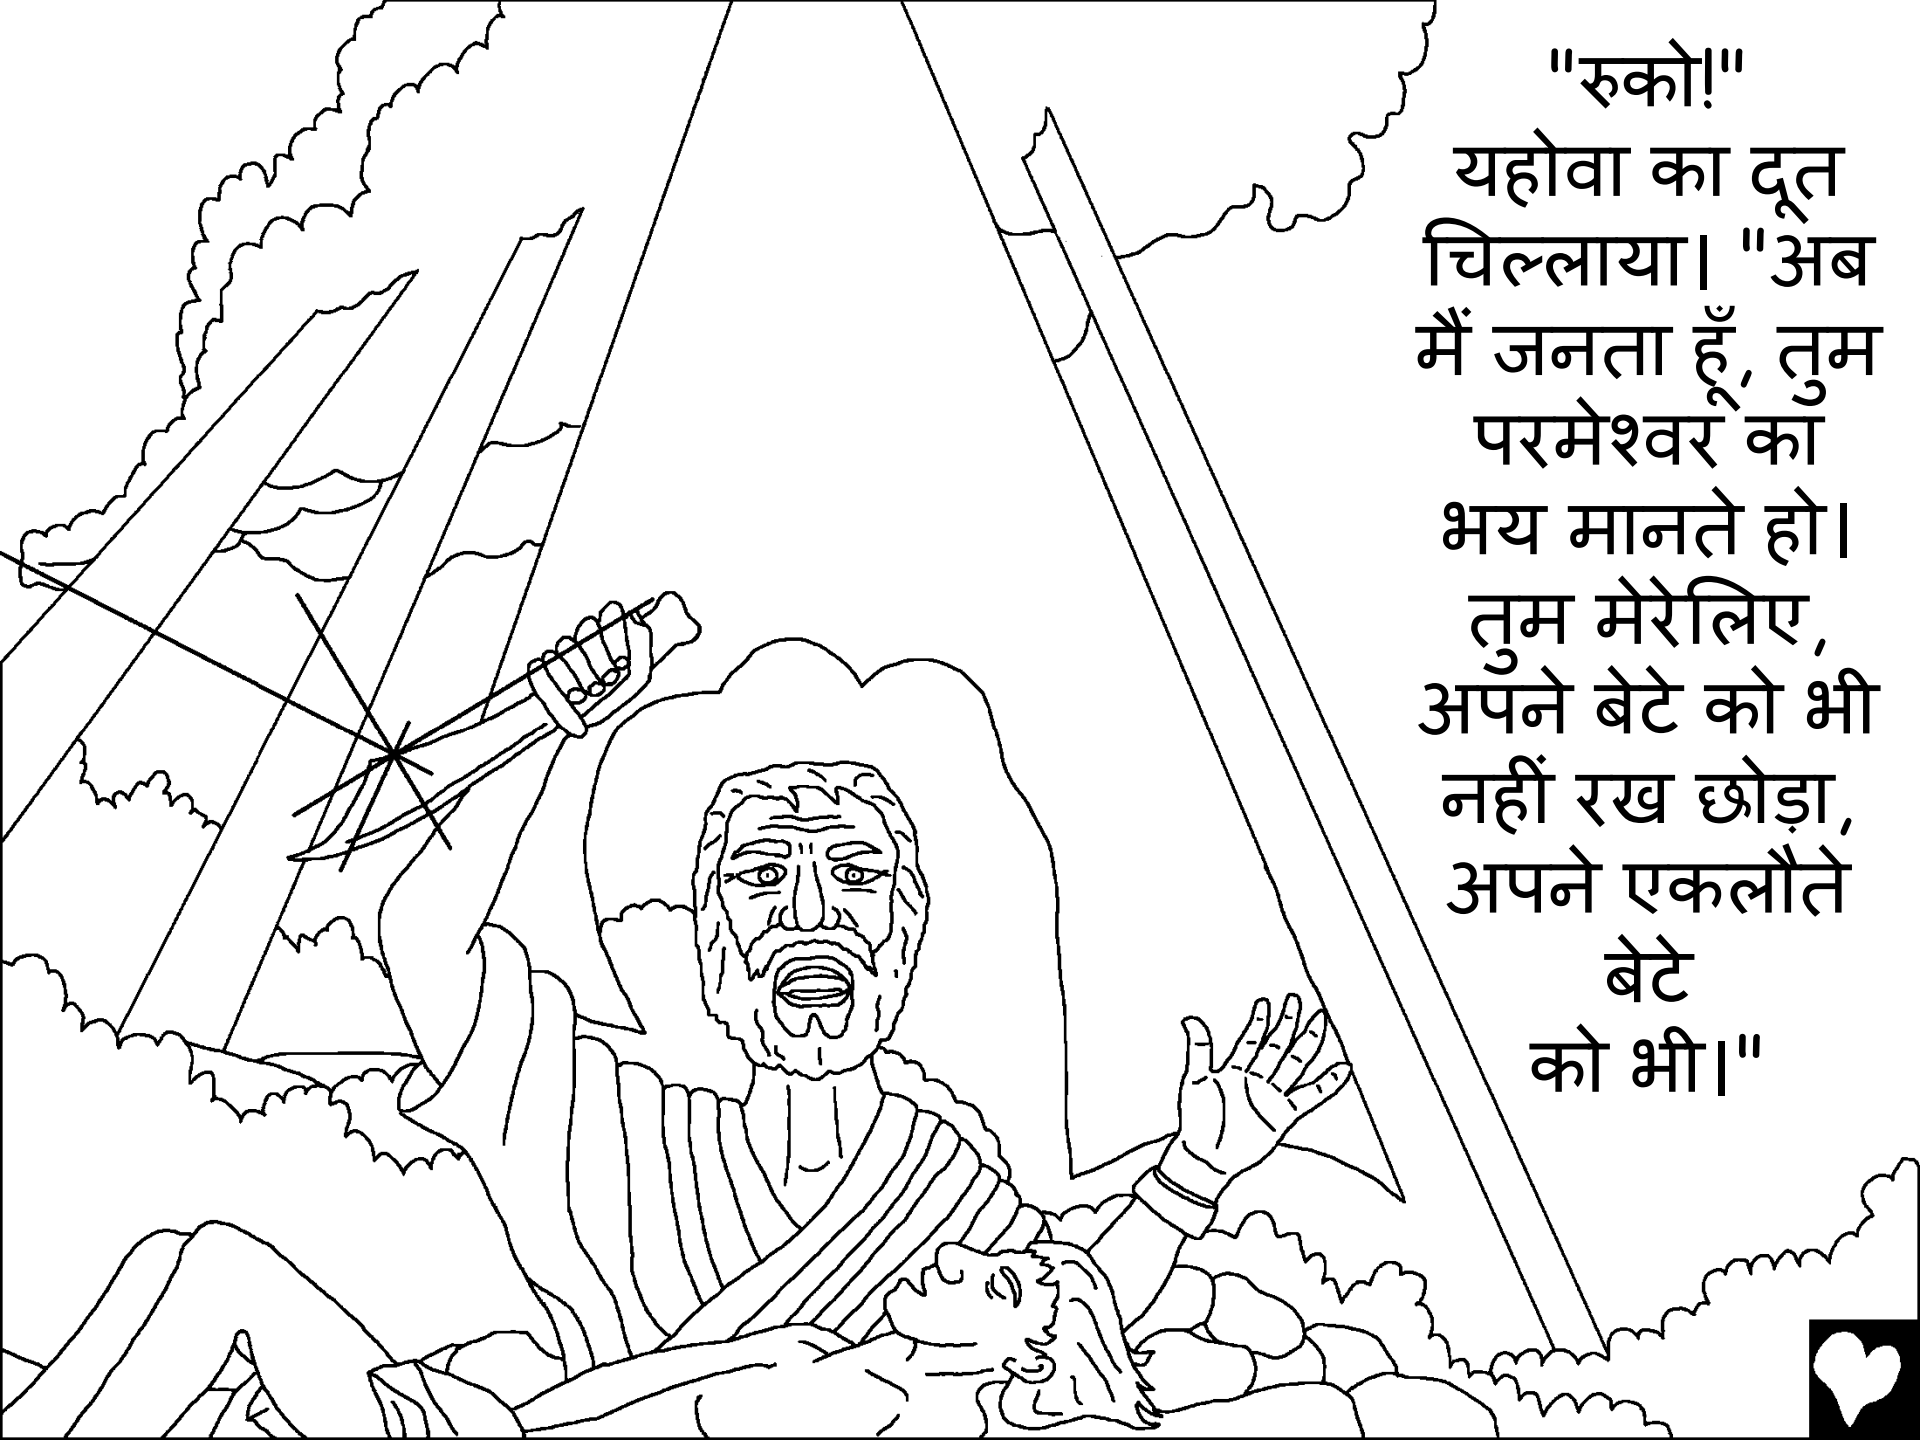 "रुको!"
यहोवा का दूत
चिल्लाया। "अब
मैं जनता हूँ, तुम
परमेश्वर का
भय मानते हो।
तुम मेरेलिए,
अपने बेटे को भी
नहीं रख छोड़ा,
अपने एकलौते
बेटे
को भी।"